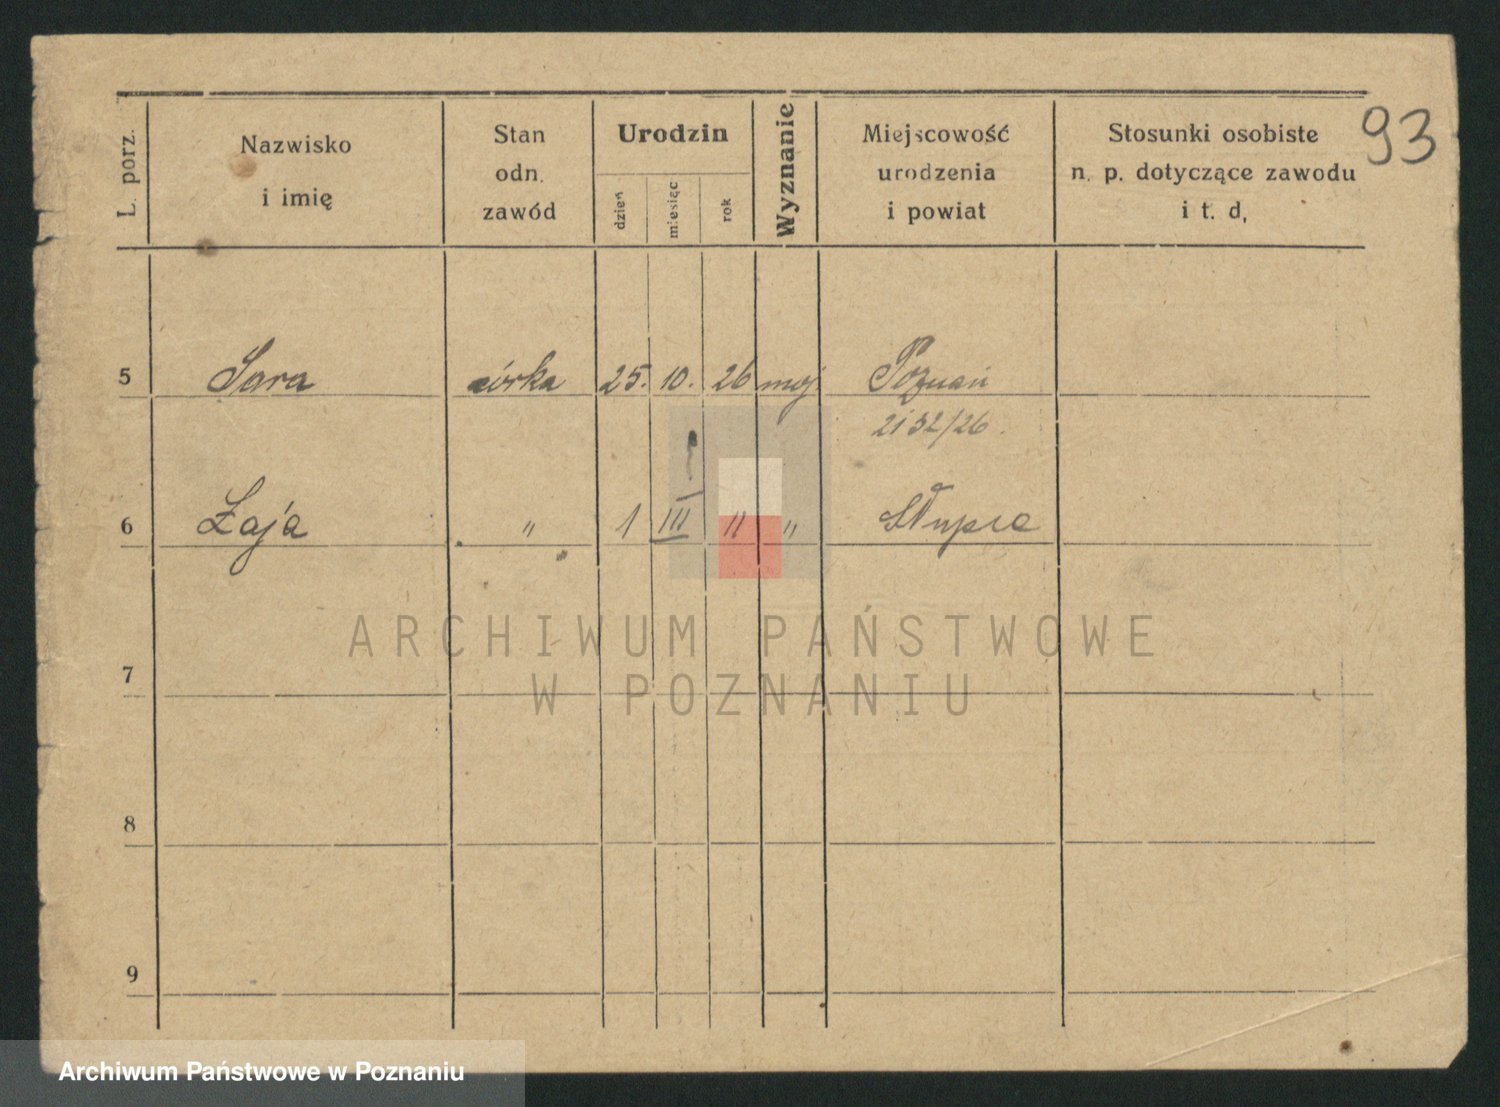 93
L. porz.
Nazwisko
i imię
Stan
odn.
zawód
Urodzin
dzień
miesiąc
rok
Wyznanie
Miejscowość
urodzenia
i powiat
Stosunki osobiste
n. p. dotyczące zawodu
i t. d,
5 Sara córka 25. 10. 26 moj. Poznań
2132/26.
6 Łaja " 1 III " " Słupca
ARCHIWUM PAŃSTWOWE
W POZNANIU
7
8
9
Archiwum Państwowe w Poznaniu